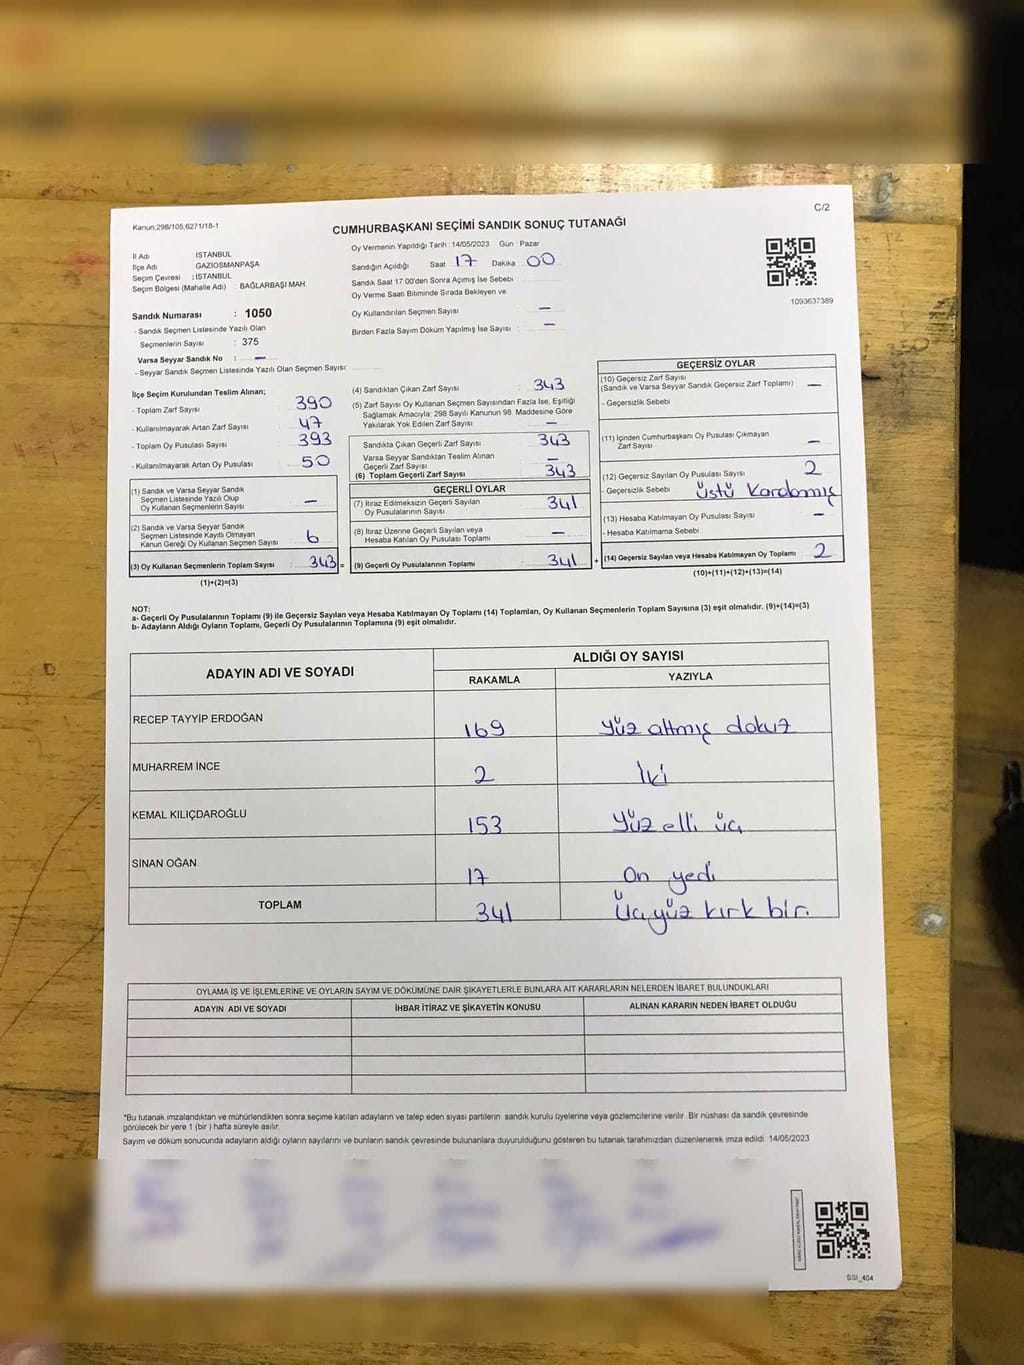 Kanun,298/105,6271/18-1
C/2
CUMHURBAŞKANI SEÇİMİ SANDIK SONUÇ TUTANAĞI
İl Adı İSTANBUL
İlçe Adı GAZİOSMANPAŞA
Seçim Çevresi : İSTANBUL
Seçim Bölgesi (Mahalle Adı) BAĞLARBAŞI MAH.
Sandık Numarası : 1050
- Sandık Seçmen Listesinde Yazılı Olan
Seçmenlerin Sayısı : 375
Varsa Seyyar Sandık No : —
- Seyyar Sandık Seçmen Listesinde Yazılı Olan Seçmen Sayısı:
Oy Vermenin Yapıldığı Tarih : 14/05/2023 Gün : Pazar
Sandığın Açıldığı Saat 17 Dakika 00
Sandık Saat 17:00'den Sonra Açımış İse Sebebi
Oy Verme Saati Bitiminde Sırada Bekleyen ve
Oy Kullandırılan Seçmen Sayısı —
Birden Fazla Sayım Döküm Yapılmış İse Sayısı : —
1093637389
İlçe Seçim Kurulundan Teslim Alınan;
- Toplam Zarf Sayısı 390
- Kullanılmayarak Artan Zarf Sayısı 47
- Toplam Oy Pusulası Sayısı 393
- Kullanılmayarak Artan Oy Pusulası 50
(1) Sandık ve Varsa Seyyar Sandık
Seçmen Listesinde Yazılı Olup
Oy Kullanan Seçmenlerin Sayısı —
(2) Sandık ve Varsa Seyyar Sandık
Seçmen Listesinde Kayıtlı Olmayan
Kanun Gereği Oy Kullanan Seçmen Sayısı 6
(3) Oy Kullanan Seçmenlerin Toplam Sayısı 343 =
(1)+(2)=(3)
(4) Sandıktan Çıkan Zarf Sayısı : 343
(5) Zarf Sayısı Oy Kullanan Seçmen Sayısından Fazla İse, Eşitliği
Sağlamak Amacıyla; 298 Sayılı Kanunun 98. Maddesine Göre
Yakılarak Yok Edilen Zarf Sayısı —
Sandıkta Çıkan Geçerli Zarf Sayısı 343
Varsa Seyyar Sandıktan Teslim Alınan
Geçerli Zarf Sayısı —
(6) Toplam Geçerli Zarf Sayısı 343
GEÇERLİ OYLAR
(7) İtiraz Edilmeksizin Geçerli Sayılan
Oy Pusulalarının Sayısı 341
(8) İtiraz Üzerine Geçerli Sayılan veya
Hesaba Katılan Oy Pusulası Toplamı —
(9) Geçerli Oy Pusulalarının Toplamı 341 +
GEÇERSİZ OYLAR
(10) Geçersiz Zarf Sayısı
(Sandık ve Varsa Seyyar Sandık Geçersiz Zarf Toplamı) —
- Geçersizlik Sebebi
(11) İçinden Cumhurbaşkanı Oy Pusulası Çıkmayan
Zarf Sayısı —
(12) Geçersiz Sayılan Oy Pusulası Sayısı 2
- Geçersizlik Sebebi üstü Karalamış
(13) Hesaba Katılmayan Oy Pusulası Sayısı —
- Hesaba Katılmama Sebebi
(14) Geçersiz Sayılan veya Hesaba Katılmayan Oy Toplamı 2
(10)+(11)+(12)+(13)=(14)
NOT:
a- Geçerli Oy Pusulalarının Toplamı (9) ile Geçersiz Sayılan veya Hesaba Katılmayan Oy Toplamı (14) Toplamları, Oy Kullanan Seçmenlerin Toplam Sayısına (3) eşit olmalıdır. (9)+(14)=(3)
b- Adayların Aldığı Oyların Toplamı, Geçerli Oy Pusulalarının Toplamına (9) eşit olmalıdır.
ADAYIN ADI VE SOYADI ALDIĞI OY SAYISI
RAKAMLA YAZIYLA
RECEP TAYYİP ERDOĞAN 169 Yüz altmış dokuz
MUHARREM İNCE 2 İki
KEMAL KILIÇDAROĞLU 153 Yüz elli üç
SİNAN OĞAN 17 On yedi
TOPLAM 341 Üçyüz kırk bir
OYLAMA İŞ VE İŞLEMLERİNE VE OYLARIN SAYIM VE DÖKÜMÜNE DAİR ŞİKAYETLERLE BUNLARA AİT KARARLARIN NELERDEN İBARET BULUNDUKLARI
ADAYIN ADI VE SOYADI İHBAR İTİRAZ VE ŞİKAYETİN KONUSU ALINAN KARARIN NEDEN İBARET OLDUĞU
*Bu tutanak imzalandıktan ve mühürlendikten sonra seçime katılan adayların ve talep eden siyasi partilerin sandık kurulu üyelerine veya gözlemcilerine verilir. Bir nüshası da sandık çevresinde
görülecek bir yere 1 (bir) hafta süreyle asılır.
Sayım ve döküm sonucunda adayların aldığı oyların sayılarını ve bunların sandık çevresinde bulunanlara duyurulduğunu gösteren bu tutanak tarafımızdan düzenlenerek imza edildi. 14/05/2023
SSI_404